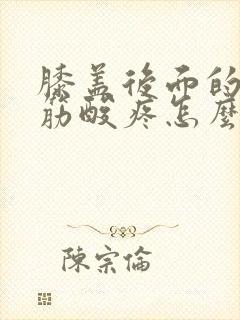 膝盖後而的
筋酸疼怎麼
陳宗倫